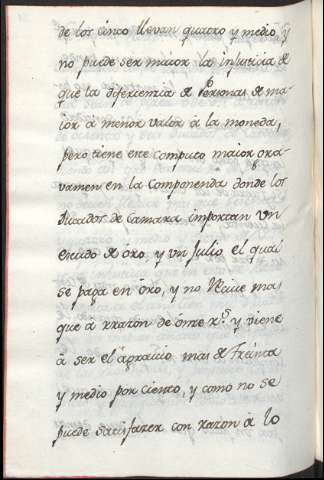 de los cinco llevan quatro y medio, y
no puede ser maior la injusticia de
que la diferiemia de Personas de ma-
ior a menor valor à la moneda,
pero tiene este computo maior gra-
vamen en la Componenda donde los
Ducados de Camara importan un
escudo de oro, y un Julio el qual
se paga en oro, y no recive mas
que á rrazon de onse rs. y viene
à ser el agravio mas de Treinta
y medio por ciento, y como no se
puede satisfazer con razon à lo